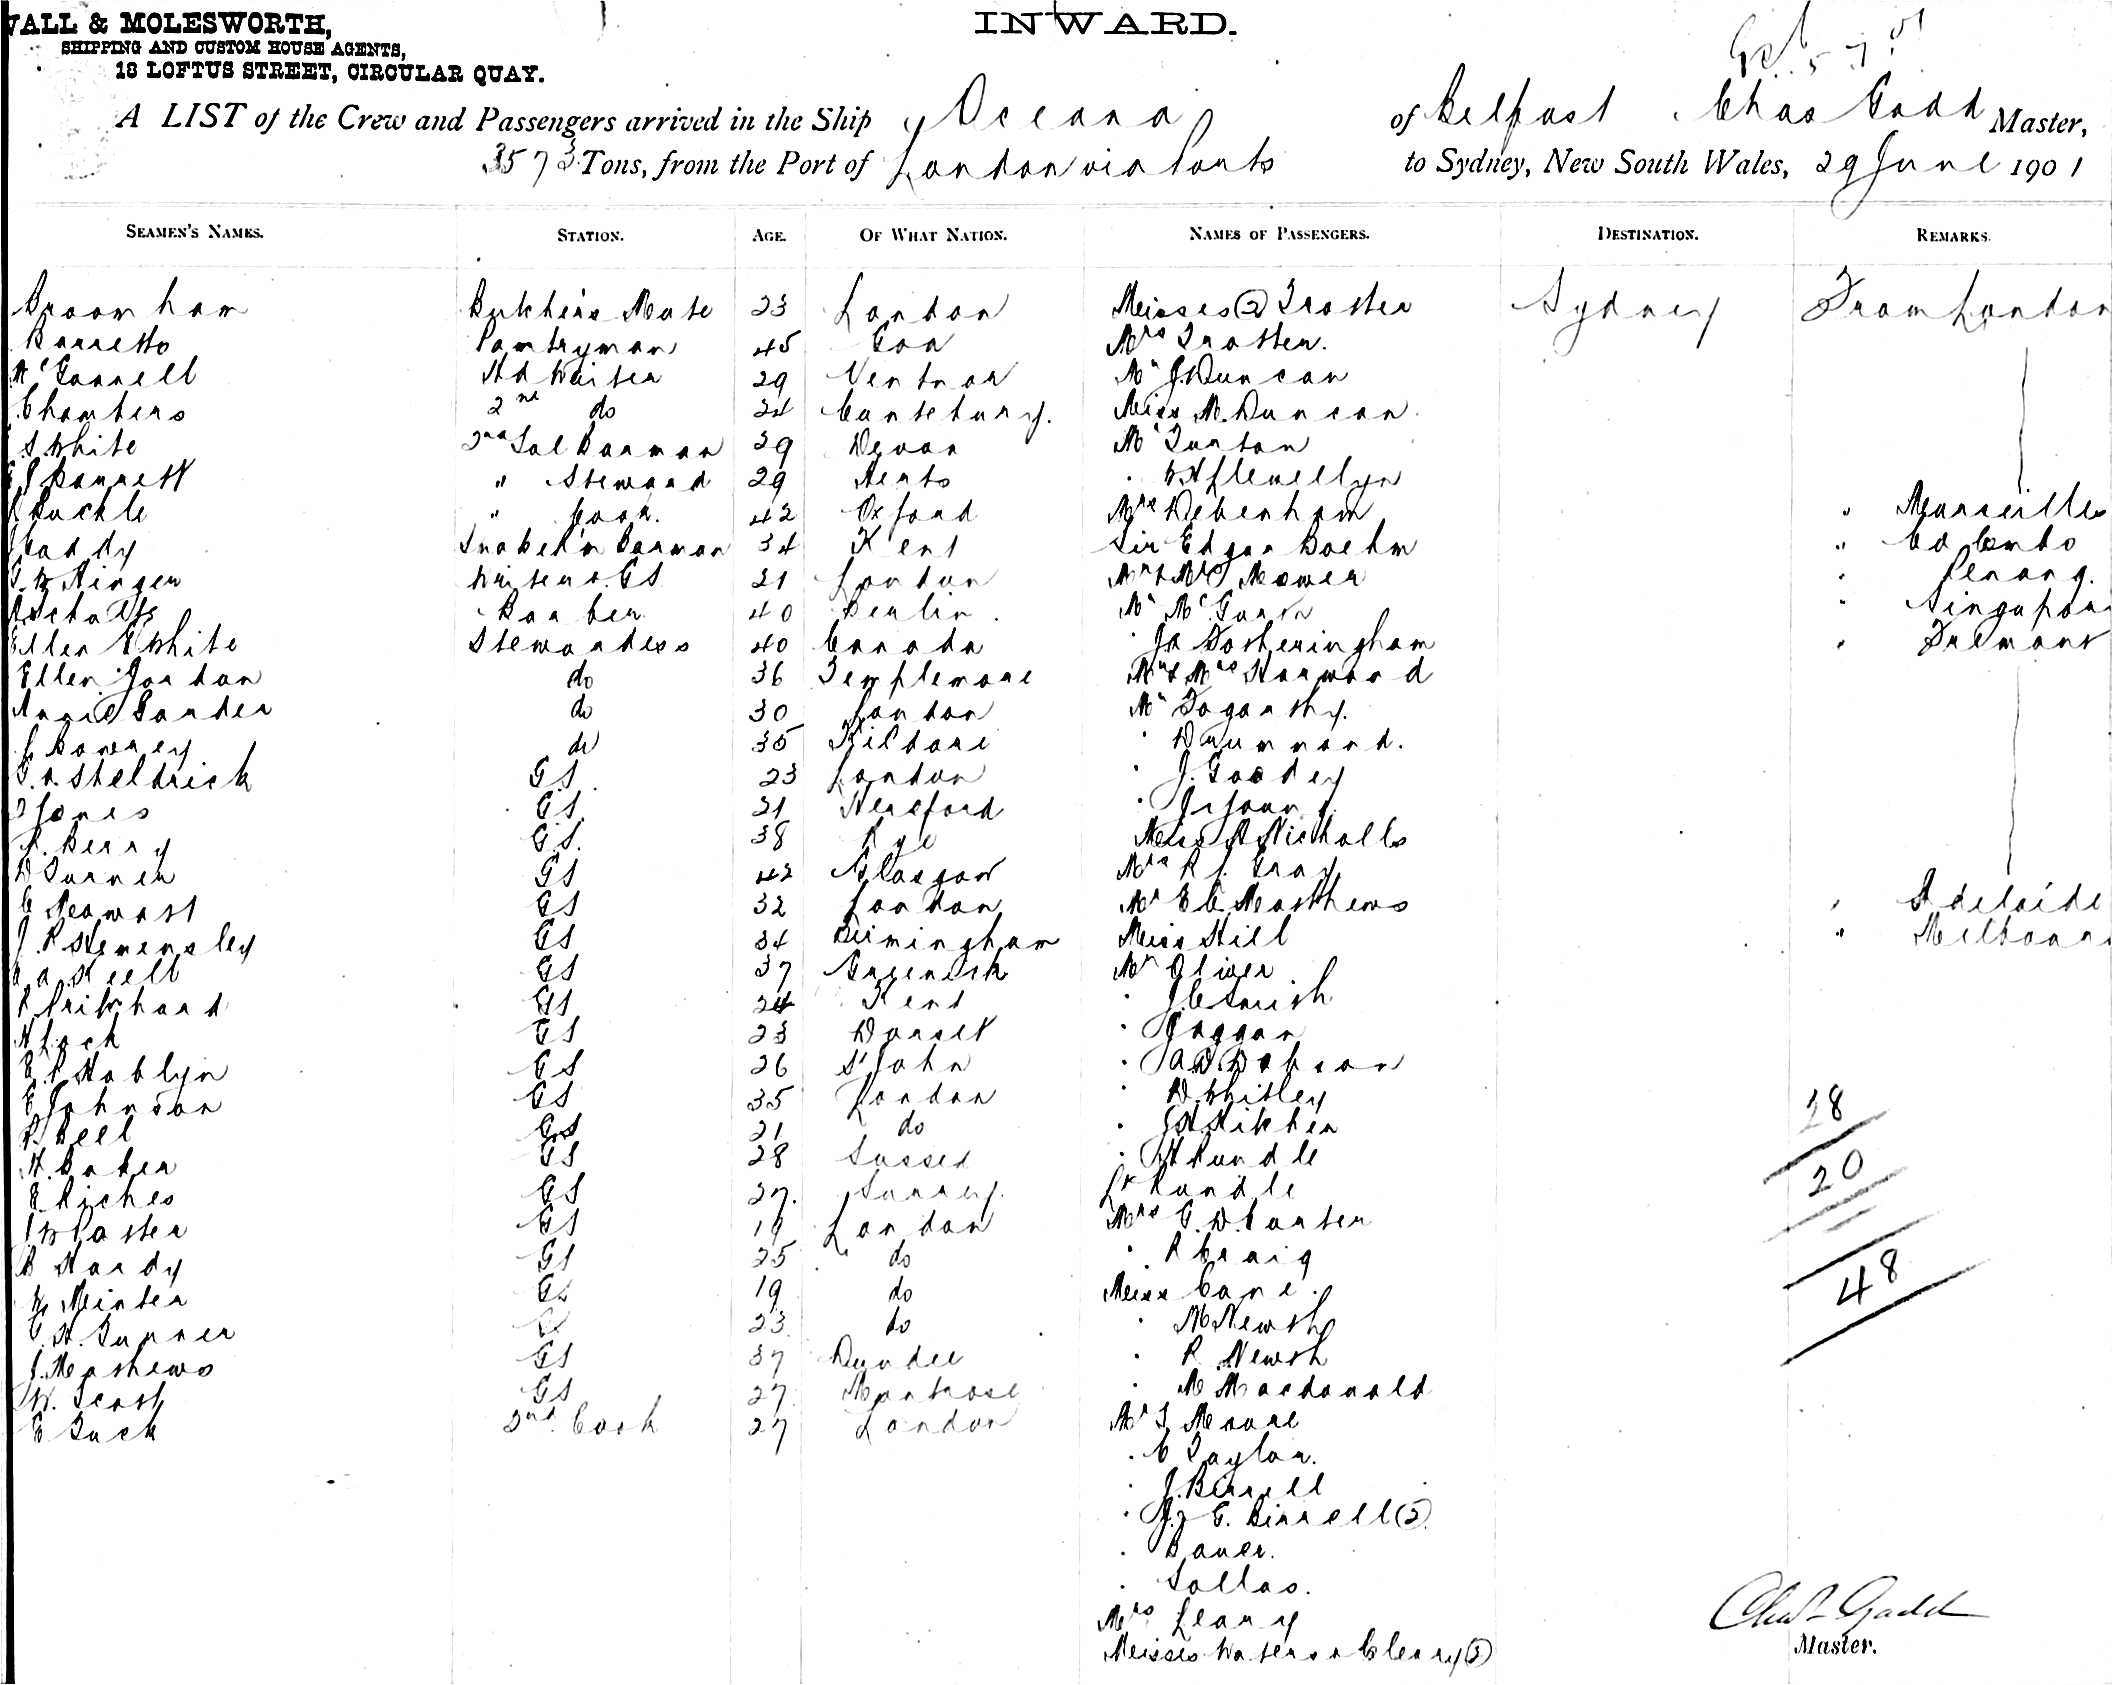 WALL & MOLESWORTH,
SHIPPING AND CUSTOM HOUSE AGENTS,
18 LOFTUS STREET, CIRCULAR QUAY.
INWARD.
A LIST of the Crew and Passengers arrived in the Ship Oceana of Belfast Chas Gadd Master,
3573 Tons, from the Port of London via Ports to Sydney, New South Wales, 29 June 1901
SEAMEN'S NAMES. STATION. AGE. OF WHAT NATION. NAMES OF PASSENGERS. DESTINATION. REMARKS.
Broomham Butchers Mate 23 London Misses (2) Troster Sydney From London
Barretto Pantryman 45 Goa Mrs Trotter.
Hd Waiter 29 Ventnor Mr J Duncan
Chambers 2nd do 24 Canterbury. Miss M. Duncan
S White 2nd Sal Barman 29 Devon Mr Turton
Barrett " Steward 29 Herts W H Llewellyn
Buckle " Cook. 42 Oxford Mrs Debenham " Marseilles
34 Kent Sir Edgar Boehm " Colombo
Writers GS 21 London Mr & Mrs Mower " Penang.
Barber 40 Berlin. Mr " Singapore
Ellen E White Stewardess 40 Canada Fotheringham " Fremant
Ellen Jordan do 36 Templemore Mr & Mrs Harwood
do 30 London Mr Fogarthy.
do 35 Kildare " Drummond.
Steldrick GS 23 London " J. Goodey
Jones GS. 21 Hereford
Berry G.S. 38 Rye Miss Nicholls
D Turner GS 42 Glasgow Mrs R J. Gray
GS 32 London Mr E C Matthews " Adelaide
GS 34 Birmingham Miss Hill " Melbourn
Kell GS 37 Greenich Mr Oliver
R Pritchard GS 24 Kent " J C Smith
H Lock GS 23 Dorset " Jaggar
Hoblyn GS 26 St John " Dobson
E Johnson GS 35 London " D Whitley
Bell GS 21 do " Hitchen
H. Baker GS 28 Sussex " H Rundle
Riches GS 27. Surrey. Rundle
GS 19 London Mrs C. D. Carter
Hardy GS 25 " do " R Craig
W Minter GS 19 do Miss Cane.
Turner 23 do " M Newth
J. Mathews GS 37 Dundee " R Newth
W. Scott GS 27 Montrose " M Macdonald
E Tuck 2nd Cook 27 London Mr T Moore
" C Taylor.
" J. Birrell
" E. Birrell (2)
" Bauer.
" Sollas.
Mrs Leary
Misses Waters & Cleary
28
20
48
Chas Gadd
Master.